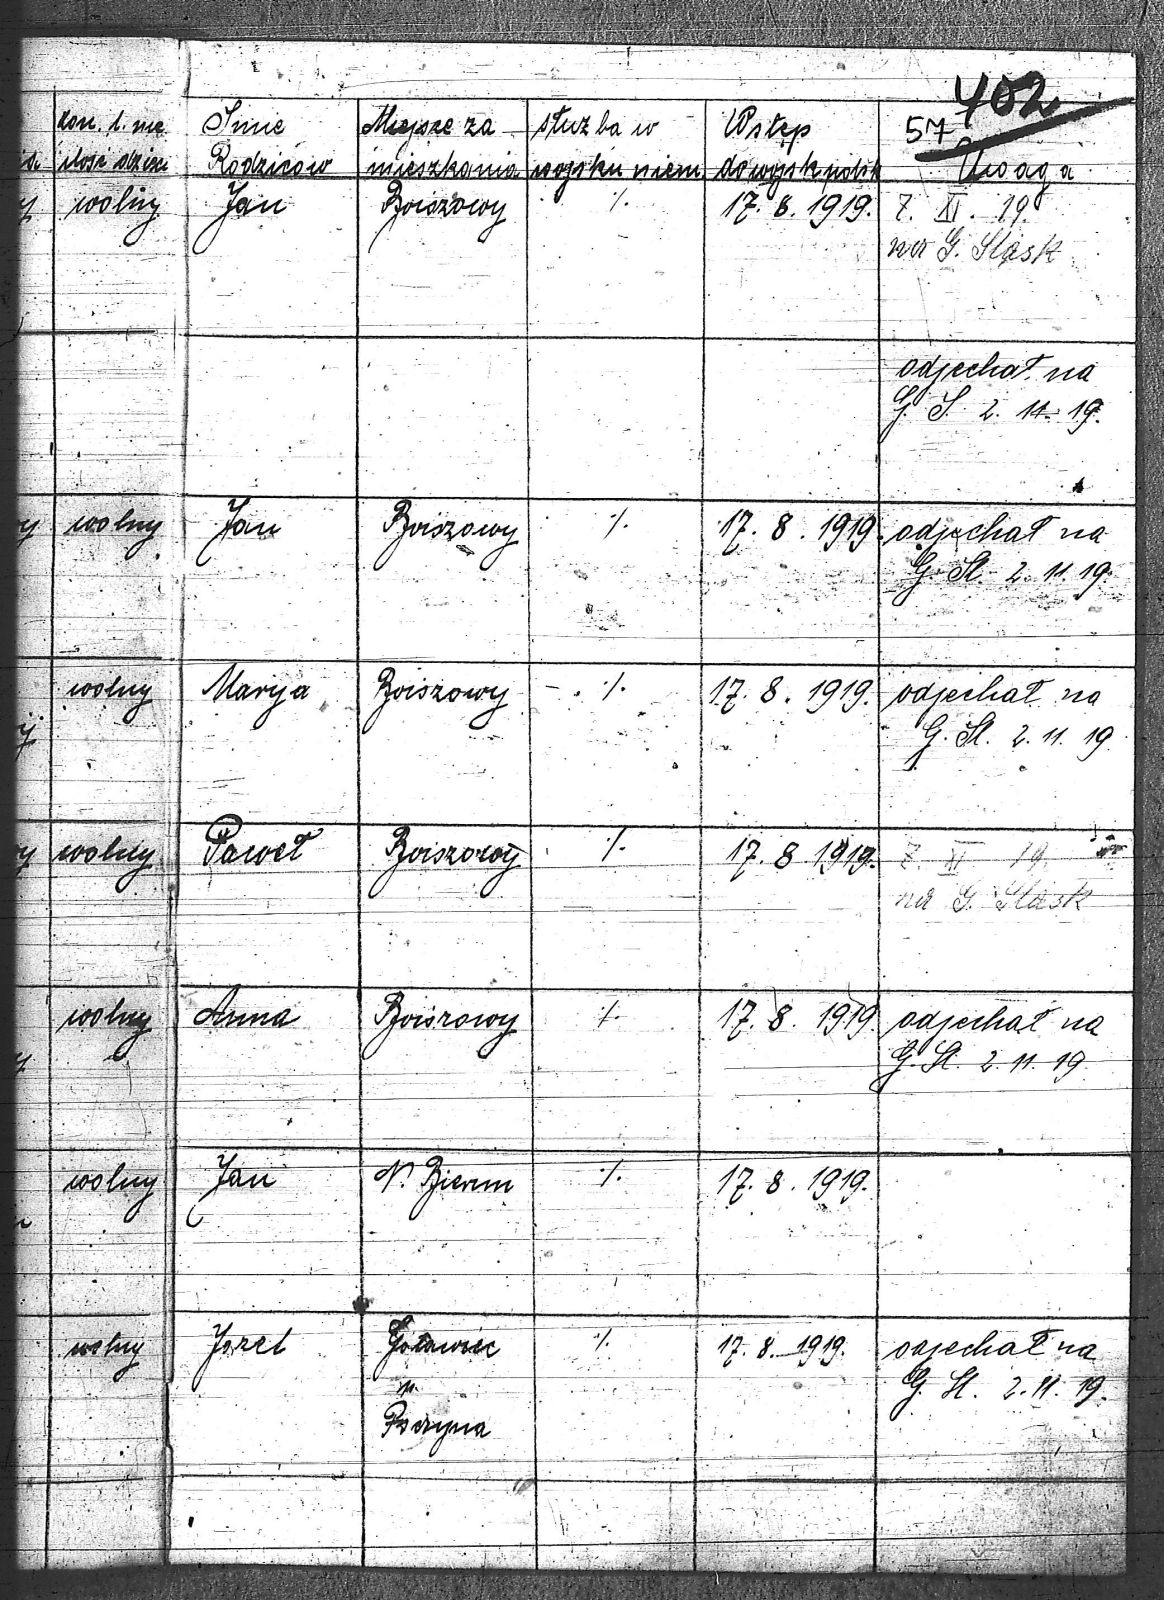 402
57
Imie Miejsce za służba w Wstęp
ilość dzieci Rodziców mieszkania wojsku niem. do wojsk polsk Uwaga
wolny Jan Boiszowy ./. 17. 8. 1919. 7. XI. 19.
na G. Sląsk
odjechał na
G. S. 2. 11. 19.
wolny Jan Boiszowy ./. 17. 8. 1919. odjechał na
G. Sl. 2. 11. 19.
wolny Marya Boiszowy ./. 17. 8. 1919. odjechał na
G. Sl. 2. 11. 19
wolny Paweł Boiszowy ./. 17. 8 1919. 7. XI 19.
na G. Sląsk
wolny Anna Boiszowy ./. 17. 8. 1919. odjechał na
G. Sl. 2. 11. 19
wolny Jan N. Bierun ./. 17. 8. 1919.
wolny Jozef ./. 17. 8. 1919. odjechał na
G. Sl. 2. 11. 19.
Pszczyna